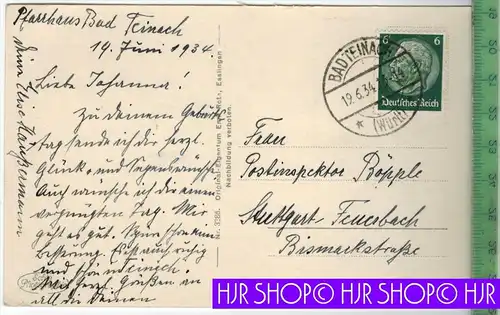 Pfarrhaus Bad Teinach
19. Juni 1934.
Liebe Johanna!
Zu deinem Geburts
tag sende ich die herzl.
Glück- und Segenswünsche
Auch wünsche ich dir einen
vergnügten Tag. Mir
geht es gut. Spüre schon
Besserung. Ist auch ruhig
und schön in Teinach.
Mit herzl. Grüßen an
all die Deinen
deine Elise Haußermann
Nr. 3388. Original-Eigentum Esslingen
Nachbildung verboten.
BAD TEINACH
19.6.34
(Württ)
6 6
Deutsches Reich
Frau
Postinspektor Böpple
Stuttgart Feuerbach
Bismarckstraße
HJR SHOP© HJR SHOP© HJR SHOP©